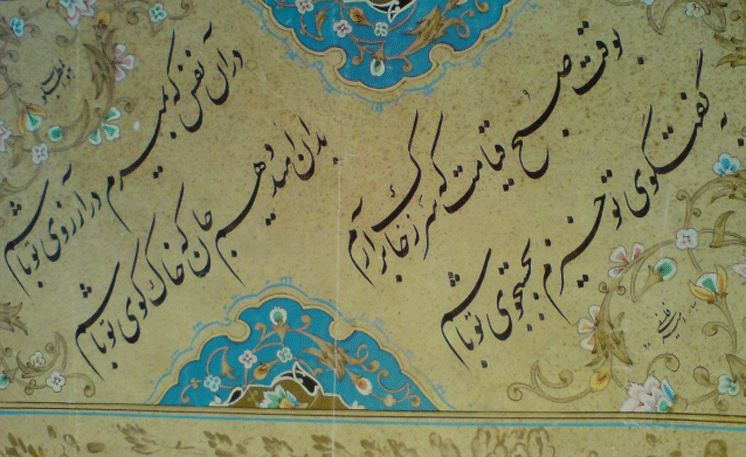 در آن نفس که بمیرم در آرزوی تو باشم
بدان امید دهم جان که خاک کوی تو باشم
بوقت صبح قیامت که سر ز خاک برآرم
بگفتگوی تو خیزم بجستجوی تو باشم